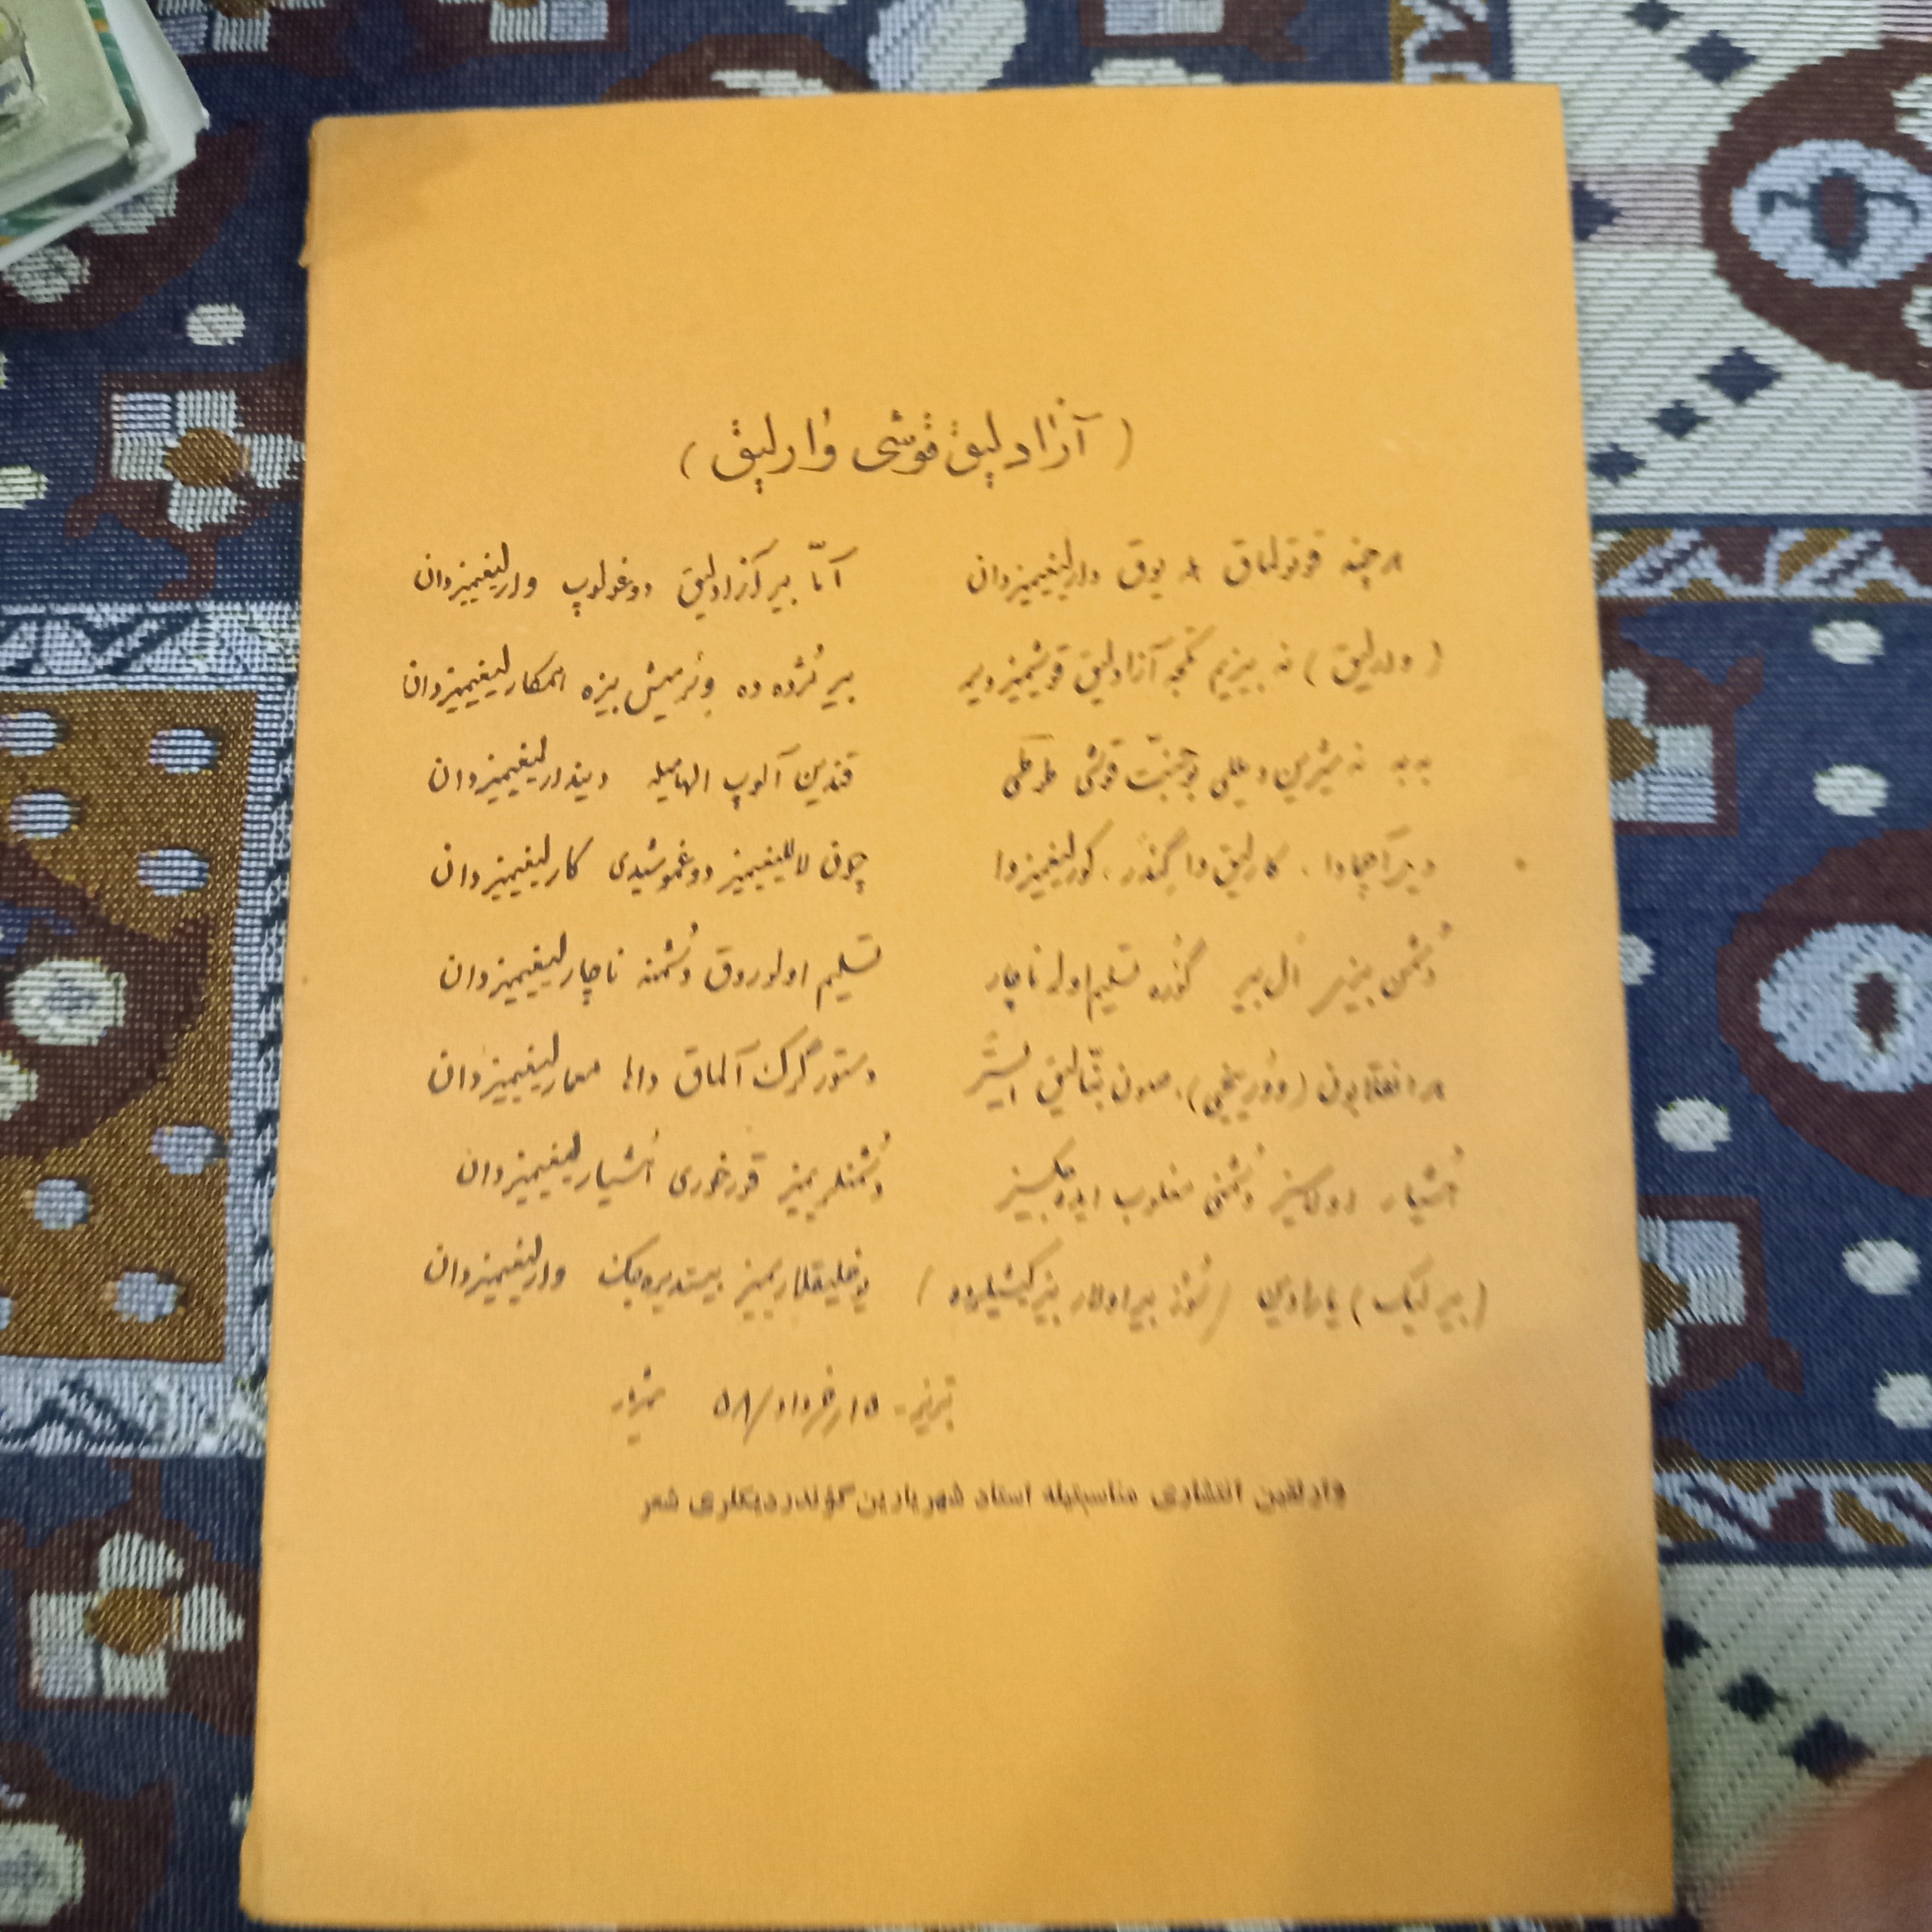 ( آزادلیق قوشی وارلیق )
هرچنه قوتولماق هله یوق وارلیغیمیزدان آمّا بیر آزادلیق دوغولوپ وارلیغیمیزدان
( وارلیق ) نه بیزیم تکجه آزادلیق قوشیمیزدیر بیر مُژده ده وئرمیش بیزه همکارلیغیمیزدان
به به نه شیرین دیللی بو جنّت قوشی طوطی قندین آلوپ الهامیله دیندارلیغیمیزدان
دیل آچمادا ، کارلیق دا گئدر ، کورلیغیمیزدا چون لاللیغیمیز دوغموشیدی کارلیغیمیزدان
دُشمن بیزی اَل بیر گؤره تسلیم اولا ناچار تسلیم اولوروق دُشمنه ناچارلیغیمیزدان
هر انقلابون (وورییخی) ، صون بنّالیق ایستر دستور گرک آلماق داها معمارلیغیمیزدان
هُشیار اولاسیز دُشمنی مغلوب ایده‌جکسیز دُشمنلریمیز قورخوری هُشیارلیغیمیزدان
(بیرلیک) یارادین (سؤز بیر اولار بیز کیشیلرده) یوخلیقلاریمیز بیتدیره‌جک وارلیغیمیزدان
تبریز - ۱۵/خرداد/۵۸ شهریار
وارلیقین انتشاری مناسبتیله استاد شهریارین گؤندردیکلری شعر